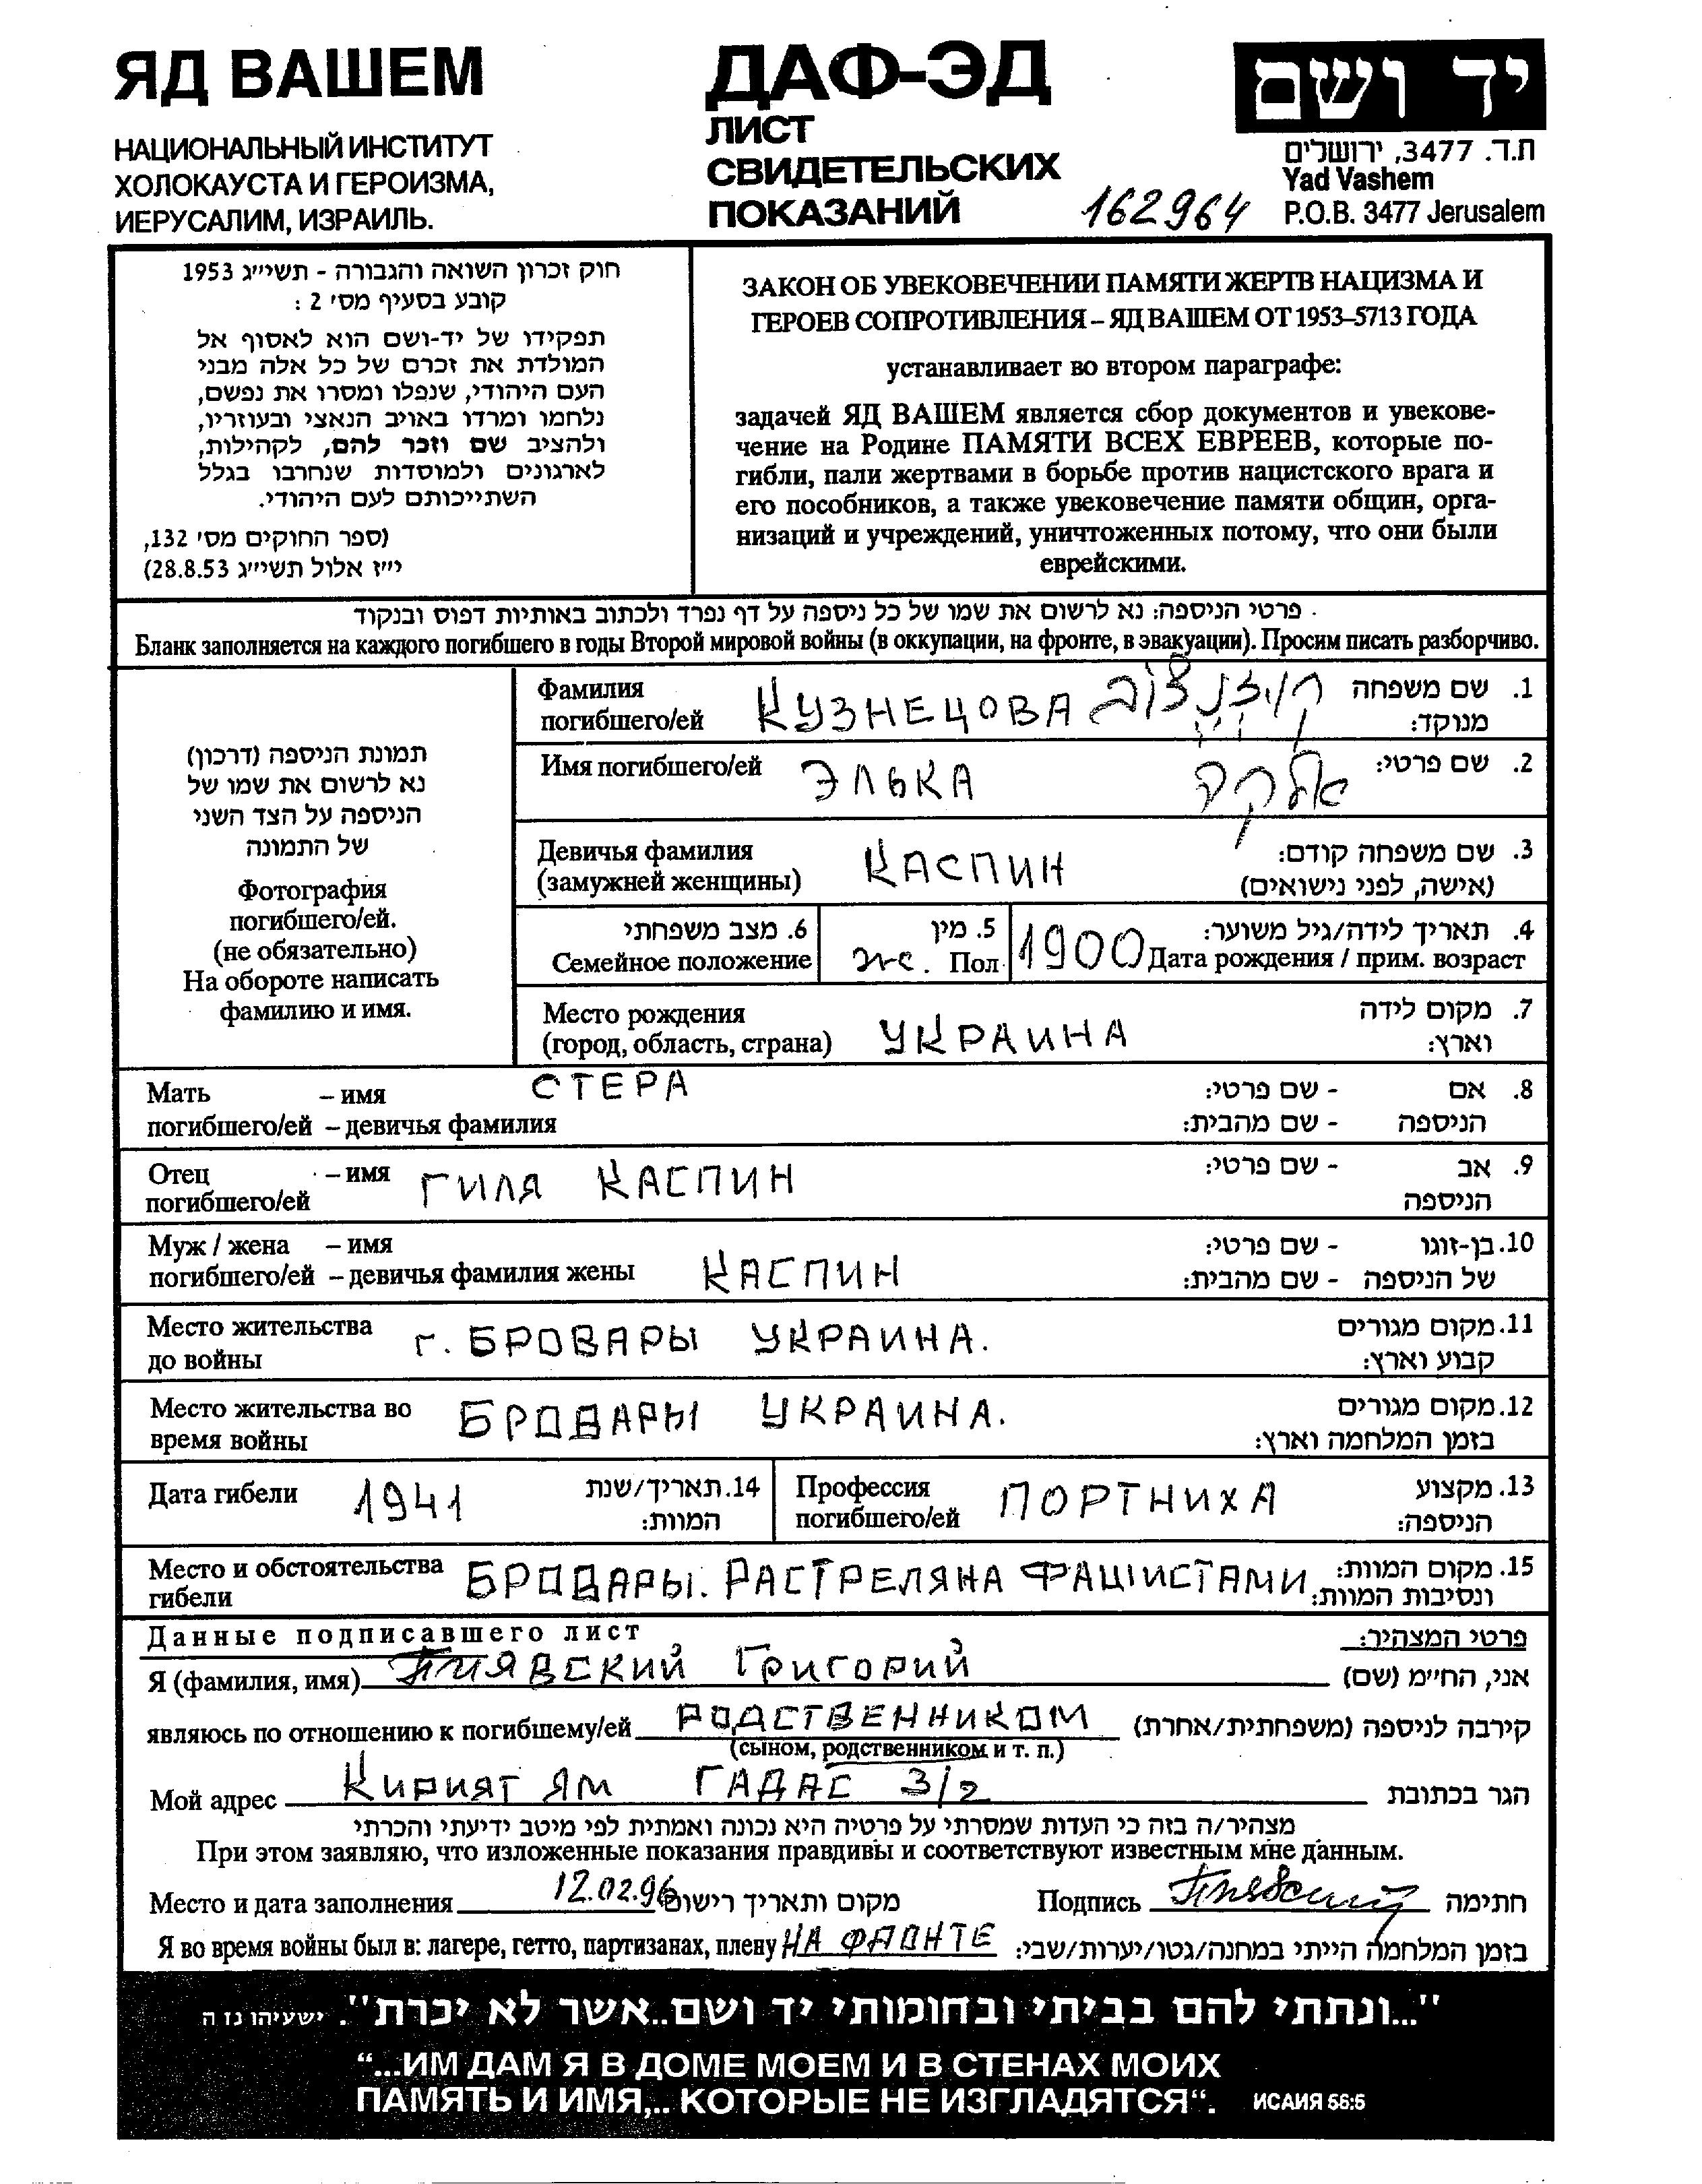 ЯД ВАШЕМ
НАЦИОНАЛЬНЫЙ ИНСТИТУТ
ХОЛОКАУСТА И ГЕРОИЗМА,
ИЕРУСАЛИМ, ИЗРАИЛЬ.
ДАФ-ЭД
ЛИСТ
СВИДЕТЕЛЬСКИХ
ПОКАЗАНИЙ
162964
יד ושם
ת.ד. 3477, ירושלים
Yad Vashem
P.O.B. 3477 Jerusalem
חוק זכרון השואה והגבורה - תשי״ג 1953
קובע בסעיף מס׳ 2 :
תפקידו של יד-ושם הוא לאסוף אל
המולדת את זכרם של כל אלה מבני
העם היהודי, שנפלו ומסרו את נפשם,
נלחמו ומרדו באויב הנאצי ובעוזריו,
ולהציב שם וזכר להם, לקהילות,
לארגונים ולמוסדות שנחרבו בגלל
השתייכותם לעם היהודי.
(ספר החוקים מס׳ 132,
י״ז אלול תשי״ג 28.8.53)
ЗАКОН ОБ УВЕКОВЕЧЕНИИ ПАМЯТИ ЖЕРТВ НАЦИЗМА И
ГЕРОЕВ СОПРОТИВЛЕНИЯ – ЯД ВАШЕМ ОТ 1953–5713 ГОДА
устанавливает во втором параграфе:
задачей ЯД ВАШЕМ является сбор документов и увекове-
чение на Родине ПАМЯТИ ВСЕХ ЕВРЕЕВ, которые по-
гибли, пали жертвами в борьбе против нацистского врага и
его пособников, а также увековечение памяти общин, орга-
низаций и учреждений, уничтоженных потому, что они были
еврейскими.
פרטי הניספה: נא לרשום את שמו של כל ניספה על דף נפרד ולכתוב באותיות דפוס ובנקוד
Бланк заполняется на каждого погибшего в годы Второй мировой войны (в оккупации, на фронте, в эвакуации). Просим писать разборчиво.
תמונת הניספה (דרכון)
נא לרשום את שמו של
הניספה על הצד השני
של התמונה
Фотография
погибшего/ей.
(не обязательно)
На обороте написать
фамилию и имя.
Фамилия погибшего/ей КУЗНЕЦОВА קוזנצוב 1. שם משפחה מנוקד:
Имя погибшего/ей ЭЛЬКА אלקה 2. שם פרטי:
Девичья фамилия (замужней женщины) КАСПИН 3. שם משפחה קודם: (אישה, לפני נישואים)
6. מצב משפחתי Семейное положение
5. מין Пол ж.
4. תאריך לידה/גיל משוער: 1900 Дата рождения / прим. возраст
Место рождения (город, область, страна) УКРАИНА 7. מקום לידה וארץ:
Мать – имя СТЕРА 8. אם - שם פרטי:
погибшего/ей – девичья фамилия הניספה - שם מהבית:
Отец – имя ГИЛЯ КАСПИН 9. אב - שם פרטי:
погибшего/ей הניספה
Муж / жена – имя 10. בן-זוגו - שם פרטי:
погибшего/ей – девичья фамилия жены КАСПИН של הניספה - שם מהבית:
Место жительства до войны г. БРОВАРЫ УКРАИНА. 11. מקום מגורים קבוע וארץ:
Место жительства во время войны БРОВАРЫ УКРАИНА. 12. מקום מגורים בזמן המלחמה וארץ:
Дата гибели 1941 14. תאריך/שנת המוות:
Профессия погибшего/ей ПОРТНИХА 13. מקצוע הניספה:
Место и обстоятельства гибели БРОВАРЫ. РАСТРЕЛЯНА ФАШИСТАМИ 15. מקום המוות: ונסיבות המוות:
Данные подписавшего лист פרטי המצהיר:
Я (фамилия, имя) Пиявский Григорий אני, החי״מ (שם)
являюсь по отношению к погибшему/ей РОДСТВЕННИКОМ קירבה לניספה (משפחתית/אחרת)
(сыном, родственником и т. п.)
Мой адрес Кирият Ям ГАДАС 3/2 הגר בכתובת
מצהיר/ה בזה כי העדות שמסרתי על פרטיה היא נכונה ואמתית לפי מיטב ידיעתי והכרתי
При этом заявляю, что изложенные показания правдивы и соответствуют известным мне данным.
Место и дата заполнения 12.02.96 מקום ותאריך רישום Подпись Пиявский חתימה
Я во время войны был в: лагере, гетто, партизанах, плену НА ФРОНТЕ בזמן המלחמה הייתי במחנה/גטו/יערות/שבי:
"...ונתתי להם בביתי ובחומותי יד ושם..אשר לא יכרת". ישעיהו נו ה
“...ИМ ДАМ Я В ДОМЕ МОЕМ И В СТЕНАХ МОИХ
ПАМЯТЬ И ИМЯ,.. КОТОРЫЕ НЕ ИЗГЛАДЯТСЯ“. ИСАИЯ 56:5